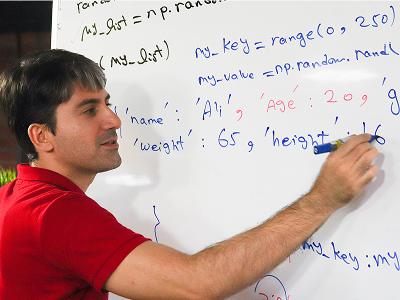 my_list = np.rando
(my_list)
my_key = range(0, 250)
my_value = np.random.rand(
'name' : 'Ali', 'Age' : 20, 'g
'weight' : 65, 'height' : 16
}
my_key : my